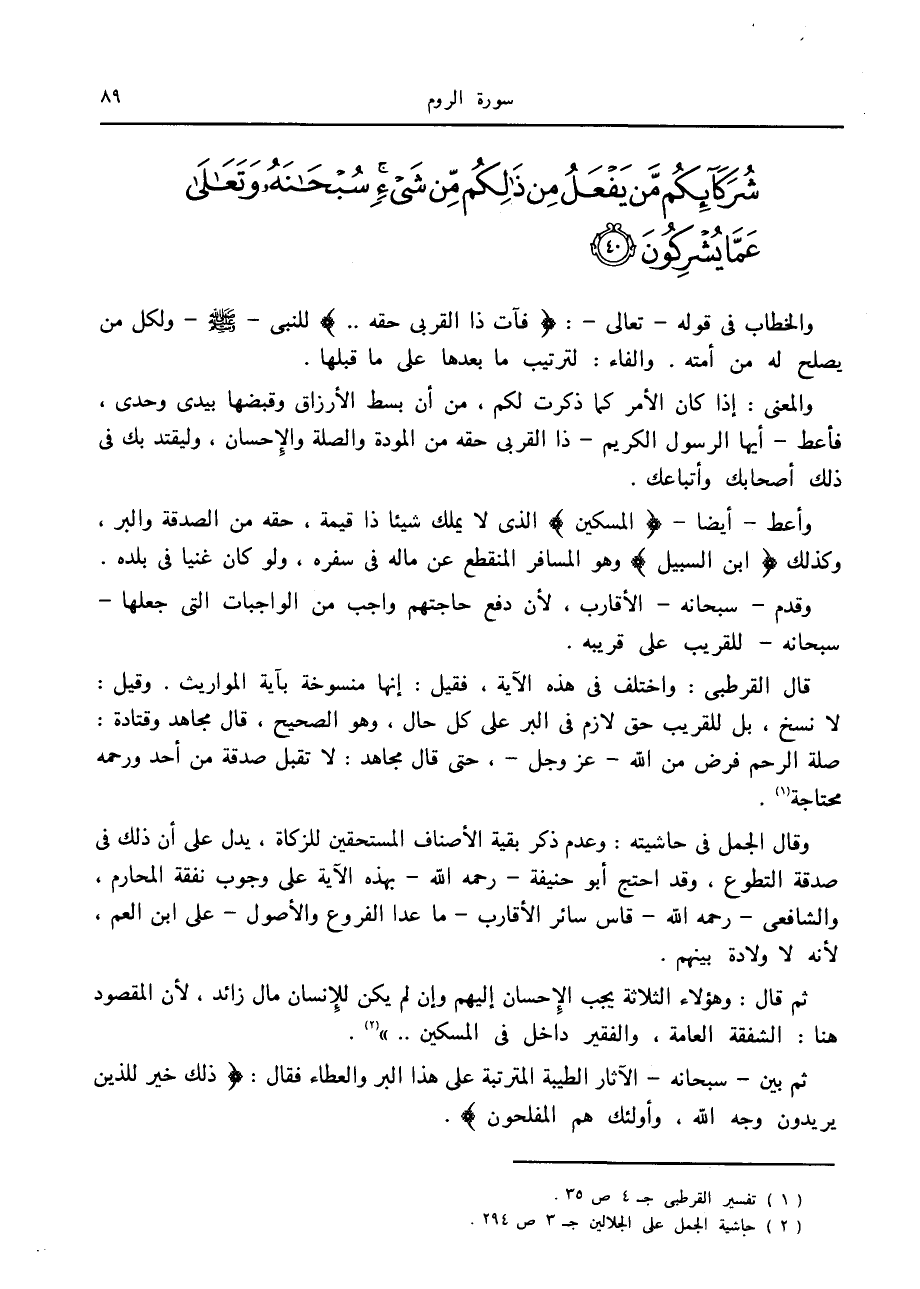 سورة الروم ٨٩
شُرَكَآئِكُم مَّن يَفْعَلُ مِن ذَٰلِكُم مِّن شَىْءٍ ۚ سُبْحَٰنَهُۥ وَتَعَٰلَىٰ
عَمَّا يُشْرِكُونَ ٤٠
والخطاب فى قوله - تعالى - : ﴿ فآت ذا القربى حقه .. ﴾ للنبى - ﷺ - ولكل من
يصلح له من أمته . والفاء : لترتيب ما بعدها على ما قبلها .
والمعنى : إذا كان الأمر كما ذكرت لكم ، من أن بسط الأرزاق وقبضها بيدى وحدى ،
فأعط - أيها الرسول الكريم - ذا القربى حقه من المودة والصلة والإحسان ، وليقتد بك فى
ذلك أصحابك وأتباعك .
وأعط - أيضا - ﴿ المسكين ﴾ الذى لا يملك شيئا ذا قيمة ، حقه من الصدقة والبر ،
وكذلك ﴿ ابن السبيل ﴾ وهو المسافر المنقطع عن ماله فى سفره ، ولو كان غنيا فى بلده .
وقدم - سبحانه - الأقارب ، لأن دفع حاجتهم واجب من الواجبات التى جعلها -
سبحانه - للقريب على قريبه .
قال القرطبى : واختلف فى هذه الآية ، فقيل : إنها منسوخة بآية المواريث . وقيل :
لا نسخ ، بل للقريب حق لازم فى البر على كل حال ، وهو الصحيح ، قال مجاهد وقتادة :
صلة الرحم فرض من الله - عز وجل - ، حتى قال مجاهد : لا تقبل صدقة من أحد ورحمه
محتاجة(١) .
وقال الجمل فى حاشيته : وعدم ذكر بقية الأصناف المستحقين للزكاة ، يدل على أن ذلك فى
صدقة التطوع ، وقد احتج أبو حنيفة - رحمه الله - بهذه الآية على وجوب نفقة المحارم ،
والشافعى - رحمه الله - قاس سائر الأقارب - ما عدا الفروع والأصول - على ابن العم ،
لأنه لا ولادة بينهم .
ثم قال : وهؤلاء الثلاثة يجب الإحسان إليهم وإن لم يكن للإنسان مال زائد ، لأن المقصود
هنا : الشفقة العامة ، والفقير داخل فى المسكين .. »(٢) .
ثم بين - سبحانه - الآثار الطيبة المترتبة على هذا البر والعطاء فقال : ﴿ ذلك خير للذين
يريدون وجه الله ، وأولئك هم المفلحون ﴾ .
( ١ ) تفسير القرطبى جـ ٤ ص ٣٥ .
( ٢ ) حاشية الجمل على الجلالين جـ ٣ ص ٢٩٤ .